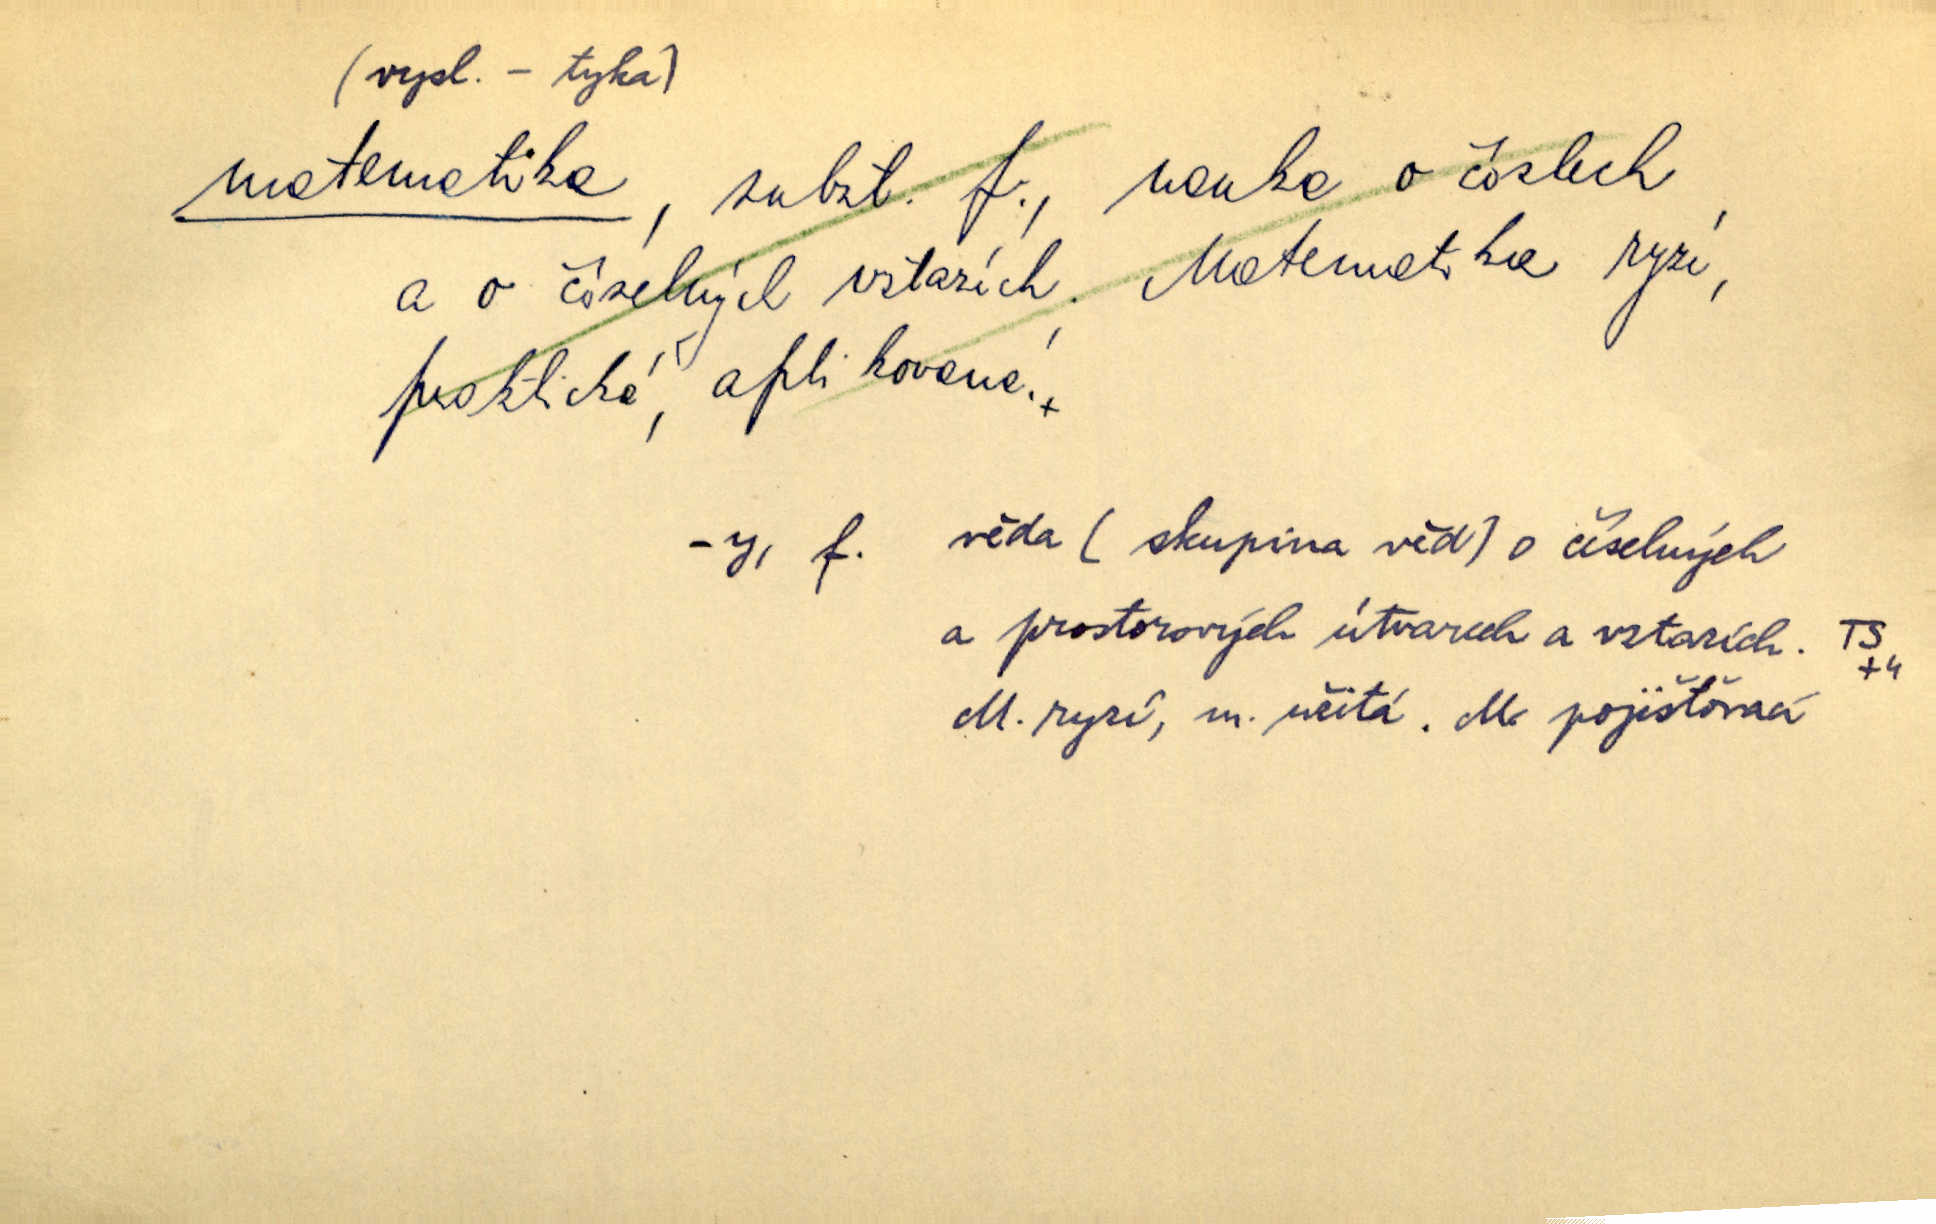 (vysl. - tyka)
matematika, subst. f., nauka o číslech
a o číselných vztazích. Matematika ryzí,
praktická, aplikovaná.+
-y, f. věda (skupina věd) o číselných
a prostorových útvarech a vztazích. TS
M. ryzí, m. užitá. M. pojišťovací